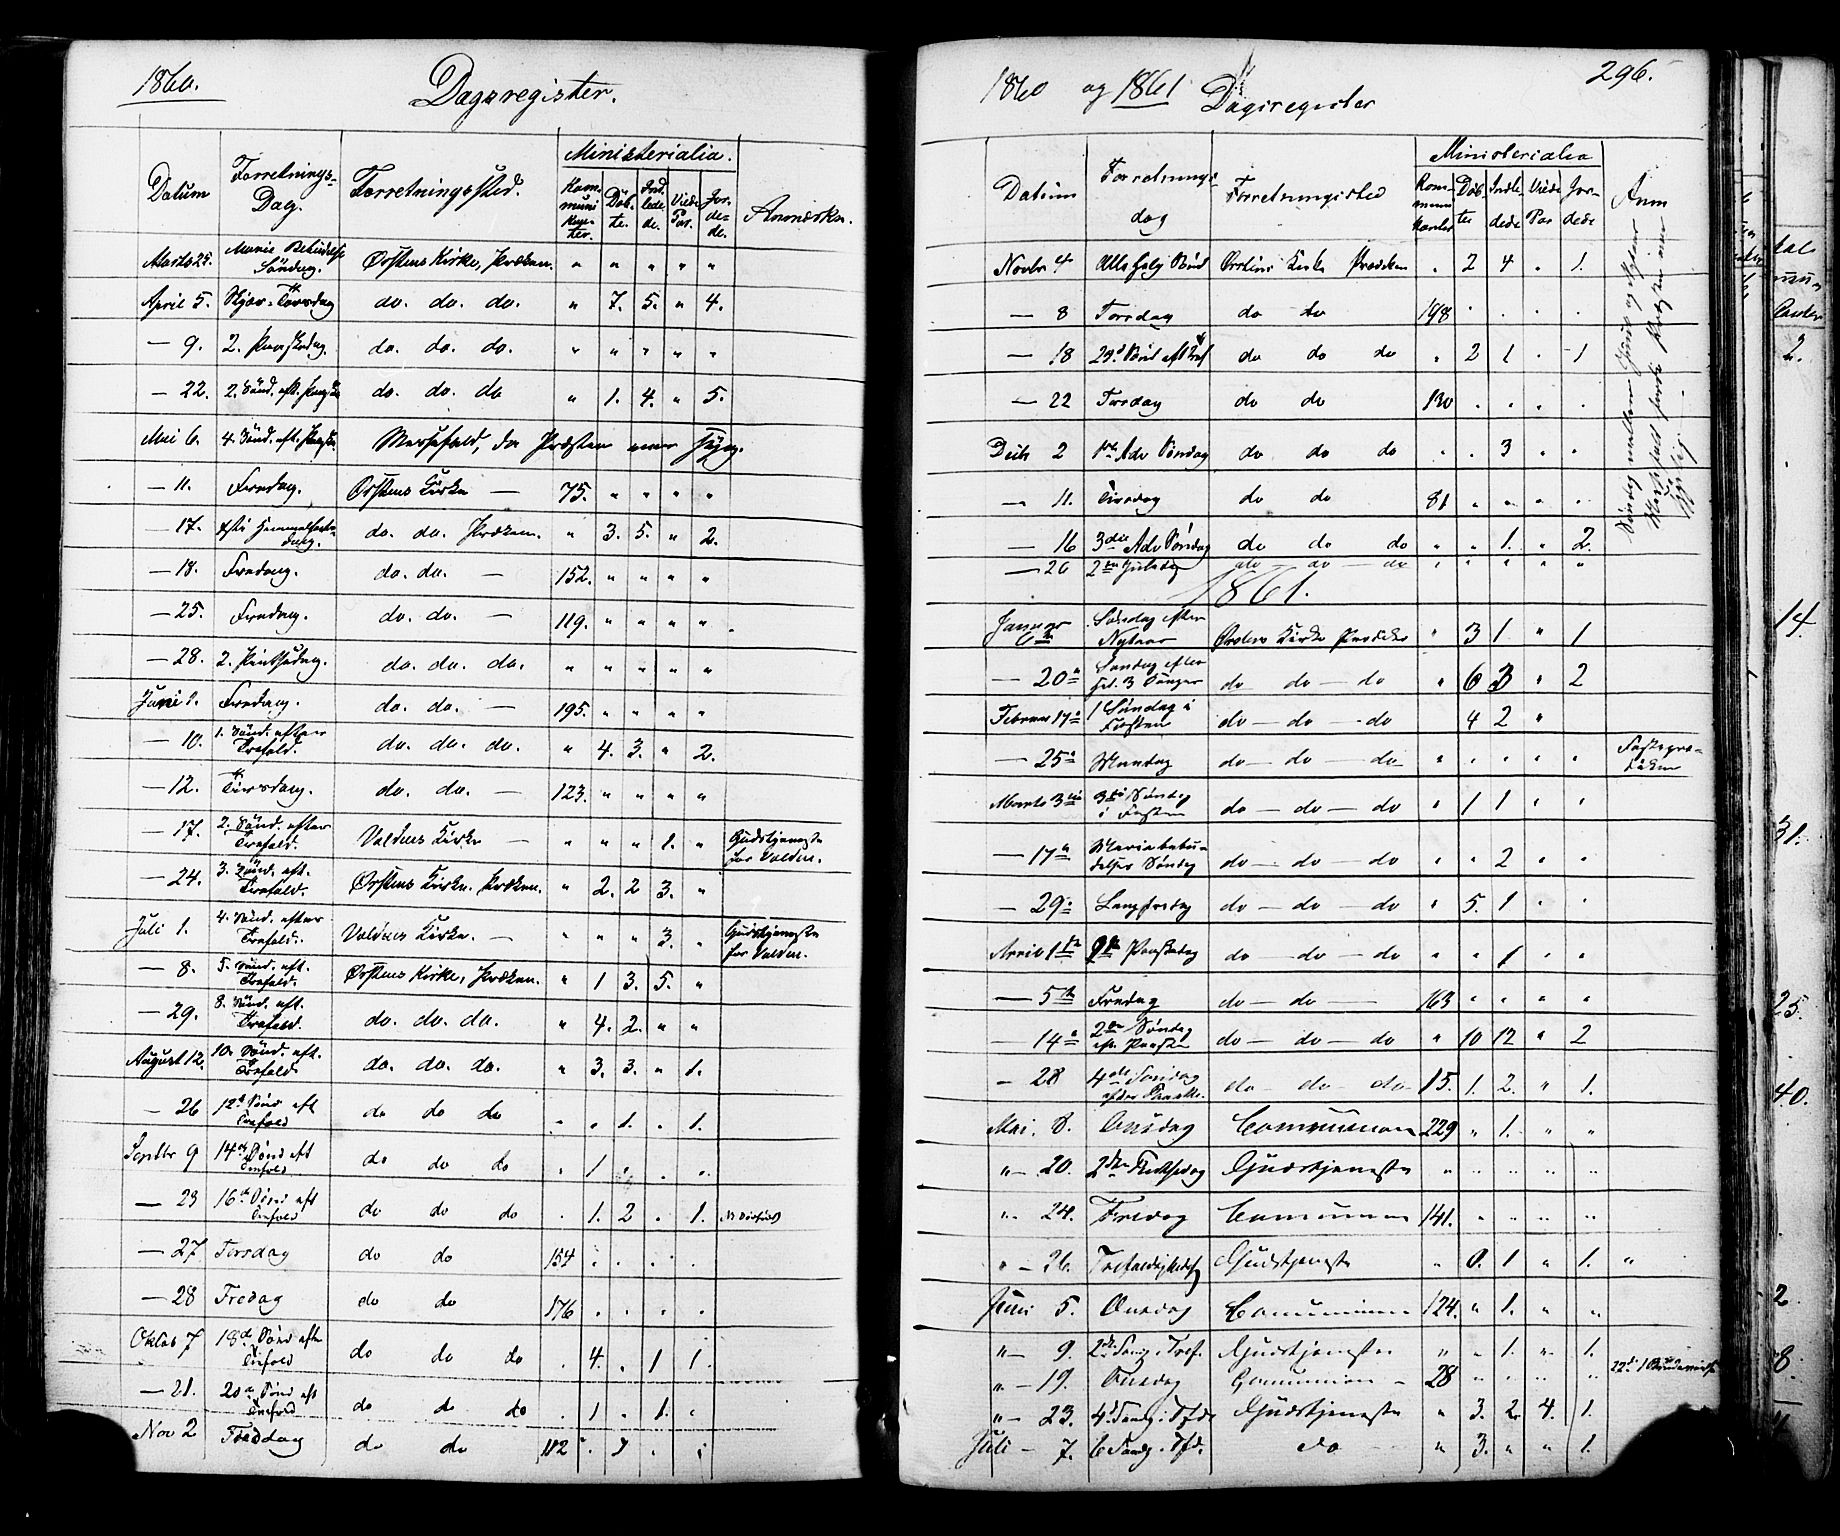 1860.
Dagsregister.
Datum Forretnings- Dag. Forretningssted. Ministerialia. Anmærkn.
Kommunikanter. Döbte. Indledede. Viede Par. Jordede.
Marts 25. Mariæ Bebudelse Söndag. Ørstens Kirke, Præken. " " " " "
April 5. Skjær-Torsdag do. do. do. " 7. 5. " 4.
— 9. 2. Paaskedag. do. do. do. " " " " "
— 22. 2. Sönd. eft. Paaske do. do. do " 1. 4. " 5.
Mai 6. 4. Sönd. eft. Paaske Messefald, da Præsten var syg.
— 11. Fredag. Ørstens Kirke — 75. " " " "
— 17. Chr. Himmelfarts-dag. do. do. Præken. " 3. 5. " 2.
— 18. Fredag. do. do. — 152. " " " "
— 25. Fredag. do. do. — 119. " " " "
— 28. 2. Pintsedag. do. do. do. " " " " "
Juni 1. Fredag. do. do. — 195. " " " "
— 10. 1. Sönd. efter Trefold. do. do. do. " 4. 3. " 2.
— 12. Tirsdag. do. do. — 123. " " " "
— 17. 2. Sönd. efter Trefold. Voldens Kirke — " " " 1. " Gudstjeneste for Volden.
— 24. 3. Sönd. eft. Trefold. Ørstens Kirke. Præken. " 2. 2 3. "
Juli 1. 4. Sönd. efter Trefold. Voldens Kirke. — " " " 3. " Gudstjeneste for Volden.
— 8. 5. Sönd. eft. Trefold. Ørstens Kirke, Præken. " 1 3. 5. "
— 29. 8. Sönd. eft. Trefold. do. do. do. " 4. 2. " "
August 12. 10. Sönd. eft. Trefold. do. do. do. " 3. 3. " 1.
— 26 12te Sönd eft Trefold do do do " " 1. . 1.
Septbr 9 14de Sönd eft Trefold do do do . 1 . . .
— 23 16de Sönd eft Trefold do do do . 1. 2 . 1.
— 27 Torsdag do do 154 . . . .
— 28 Fredag do do 176 . . . .
Oktob 7 18de Sönd efter Trefold do do do . 4. . 1 1.
— 21. 20de Sönd eft Trefold do do do . 1 . 1. .
Nov 2 do do 182
1860 og 1861 Dagsregister
296.
Datum Forretnings- dag Forretningssted Ministerialia Anm
Kommunikanter Döbte Indledede Viede Par Jordede
Novbr 4 Alle Helg Sönd Ørstens Kirke Præken . 2 4 . 1.
— 8 Torsdag do do 198 . . . .
— 18 do do do " 2 1 . 1
— 22 Torsdag do do 130 . . . .
Decbr 2 1ste Adv Söndag do do do . . 3 . .
— 11. Tirsdag do do 81 . . . .
— 16 3die Adv Söndag do do do " " 1. " 2.
— 26 2den Juledag do — do — do " " " " "
1861.
Januar 6te Söndag efter Nytaar Ørstens Kirke Præken " 3 1 " 1
— 20de Söndag efter Hel. 3 Konger do — do — do " 6 3 " 2
Februar 17de 1 Söndag i Fasten do — do — do 4 2 "
— 25de Mandag do — do — do " " " " " Fastepræken
Marts 3die 3die Söndag i Fasten do — do — do " 1 1 " "
— 17de Mariæbebudelses Söndag do — do — do " " 2 " "
— 29de Langfredag do — do — do " 5. 1 " "
April 1ste Paaskedag do — do — do " " 1 " "
— 5te Fredag do — do — 163 " " " "
— 14de 2den Söndag eft. Paaske do — do — do " 10 12 " 2
— 28 4de Söndag efter Paaske. do — do — do 15. 1. 2. " 1.
Mai. 8. Onsdag Communion 229 " 1. " "
" — 20. 2den Pintsedag Gudstjeneste " " " " "
" 24. Fredag Communion 141. " " " "
" — 26. Trefoldighedsf Gudstjeneste " 0. 1 " 1. "
Juni 5. Onsdag Communion 124. " 1. " "
" — 9. 2den Söndg. i Tref. Gudstjeneste " " 1. " 1.
" — 19. Onsdag Communion — 28 " " " "
" — 23. 4de Söndg. i Tfd. Gudstjeneste " 3. 2. 4. 1.
Juli — 7. 6 Söndg. i Tfd. do " 3. " " 1.
2.
14.
31.
25.
40.
2.
8.